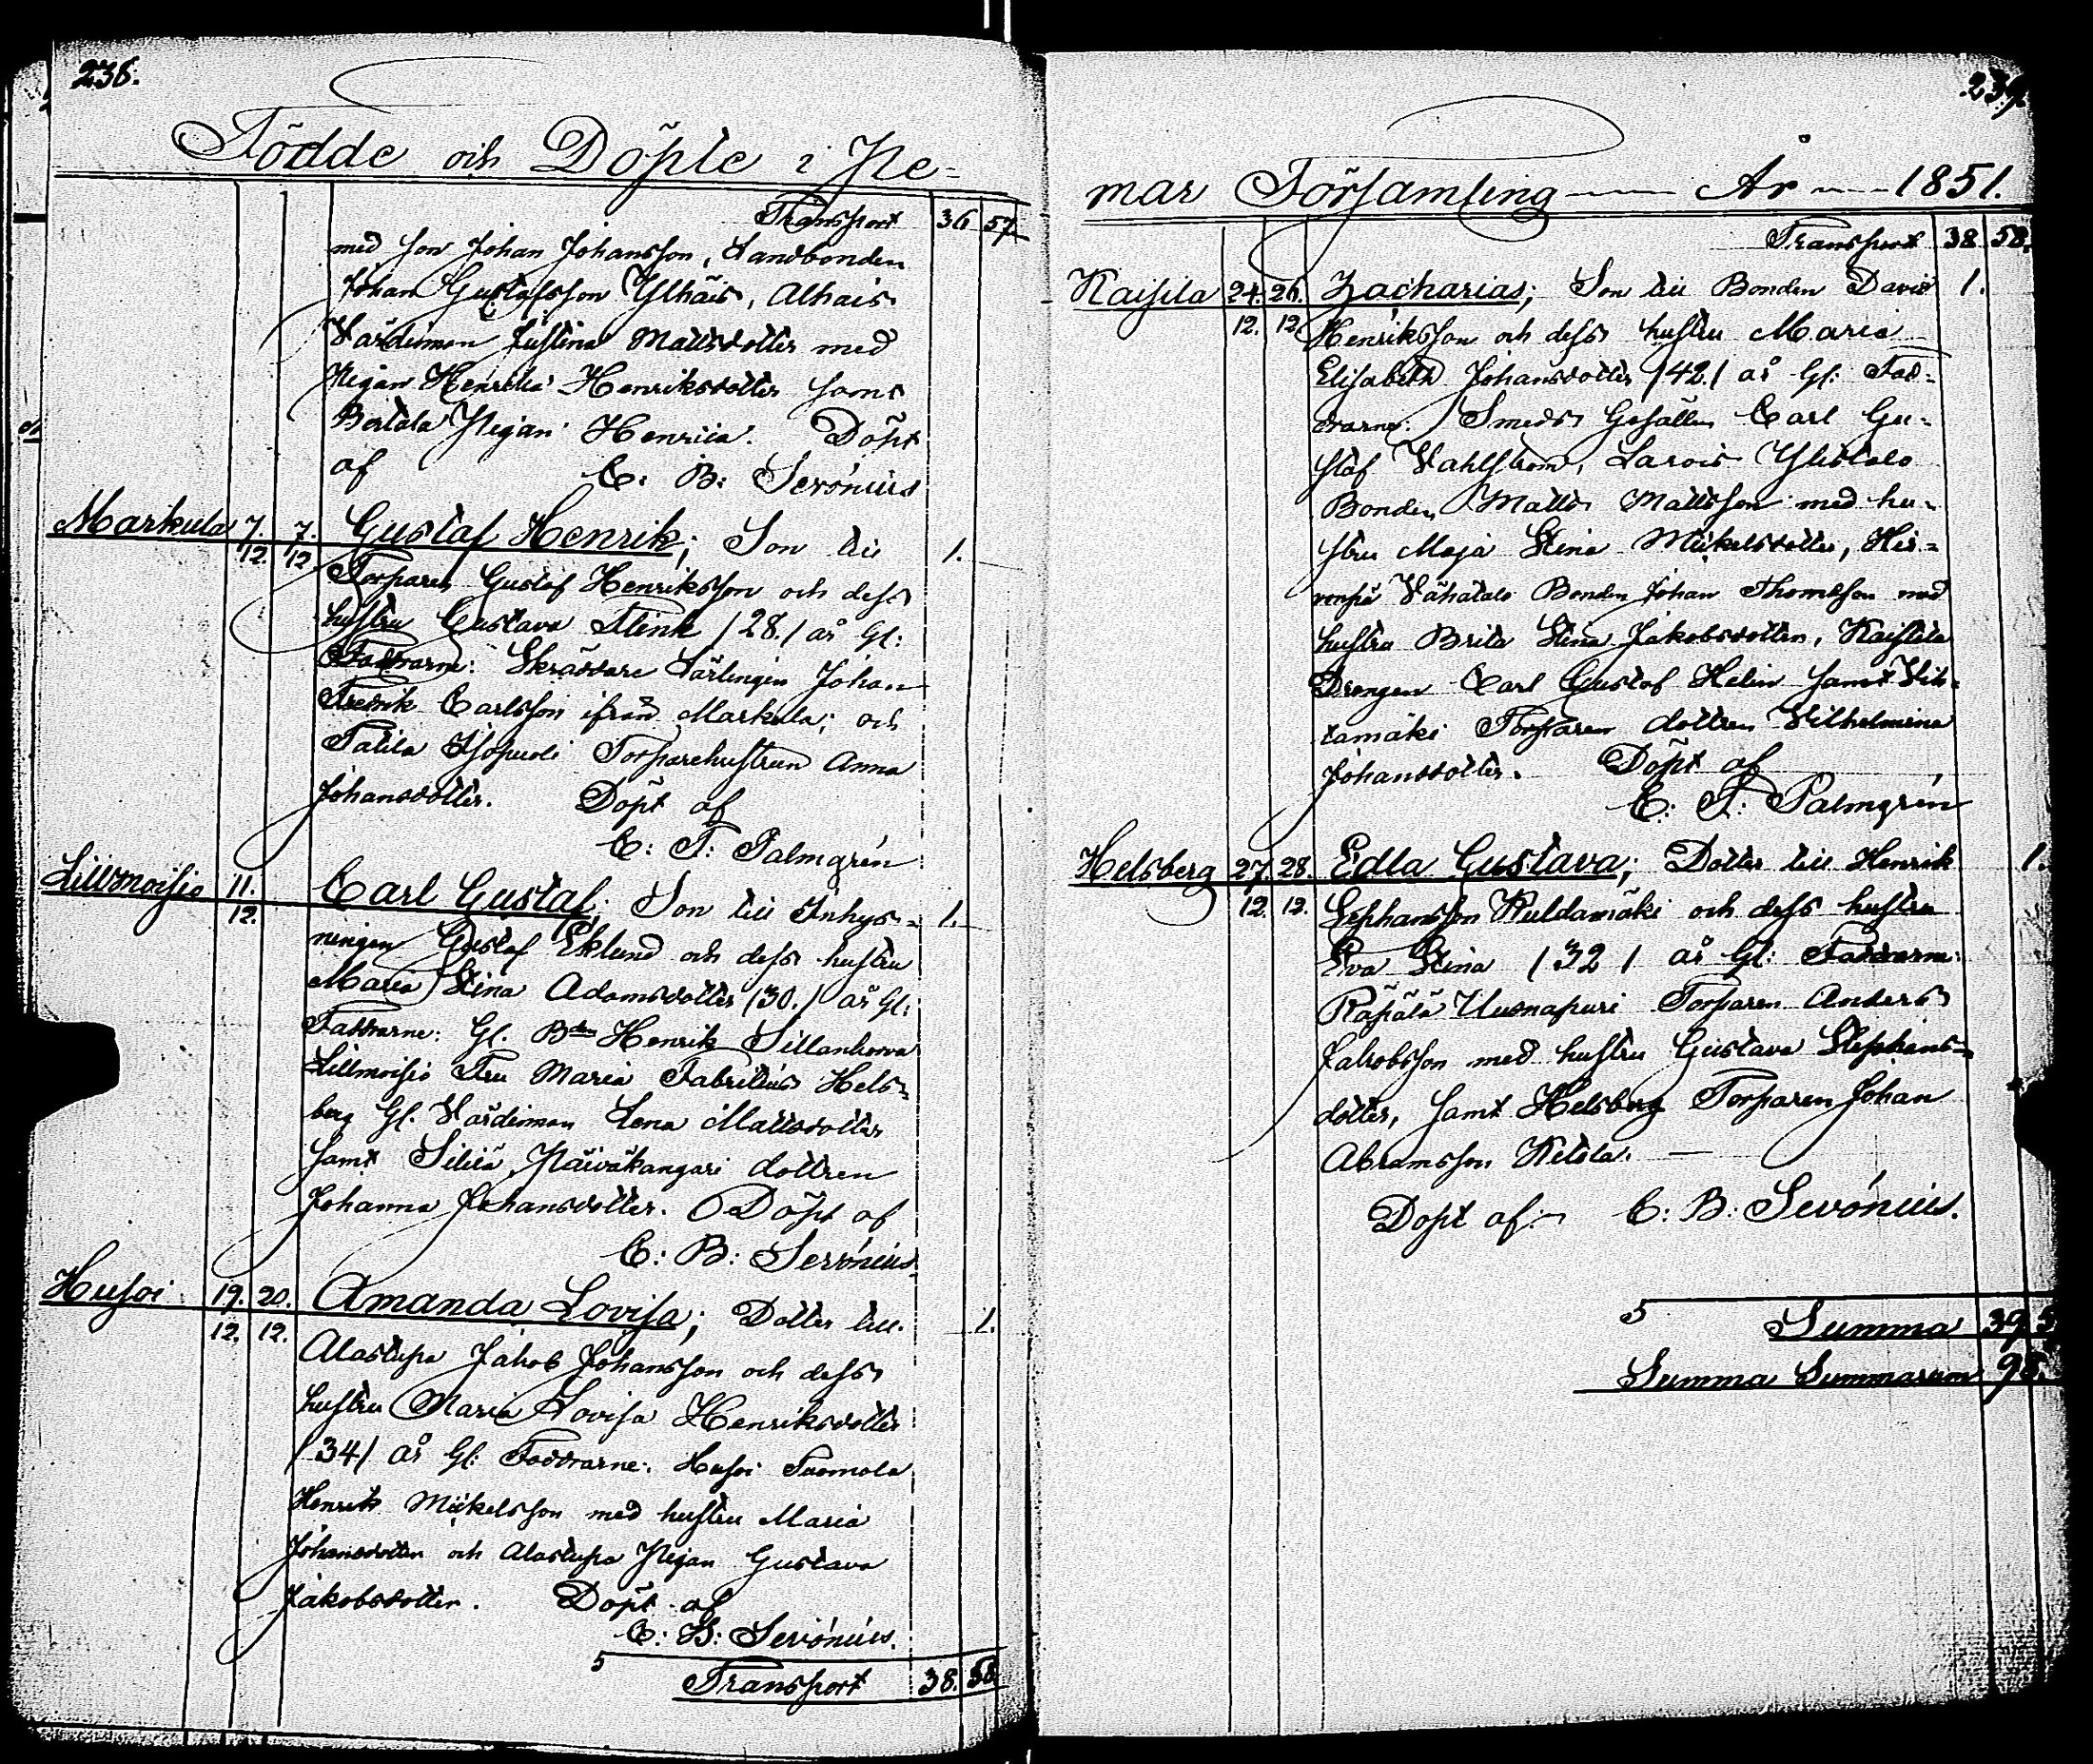 238.
Födde och Döpte i Pe-
Transport 36 57
med Son Johan Johansson, Landbonden
Johan Gustafsson Ylhäis, Alhais
Värdinnan Justina Mattsdotter med
Pigan Henrika Henriksdotter samt
Bertala Pigan Henrica. Döpt
af C: B: Serónius
Markula 7. 7. Gustaf Henrik; Son till 1.
12. 12 Torparen Gustaf Henriksson och dess
hustru Gustava Stenk /28./ år Gl:
Faddrarne: Skräddare Lärlingen Johan
Fredrik Carlsson ifrån Markula; och
Tatila Isopuoli Torparehustrun Anna
Johansdotter. Döpt af
C: F: Palmgrén
Lillmoisio 11. Carl Gustaf; Son till Inhys- 1.
12. ningen Gustaf Eklund och dess hustru
Maria Stina Adamsdotter /30./ år Gl:
Faddrarne: Gl. Bden Henrik Sillankorva
Lillmoisio Fru Maria Fabritius Hels-
berg Gl. Värdinnan Lena Mattsdotter
samt Päiväkangari dottren
Johanna Johansdotter. Döpt af
C: B: Serónius
Husoi 19. 20. Amanda Lovisa; Dotter till 1.
12. 12. Alastupa Jakob Johansson och dess
hustru Maria Lovisa Henriksdotter
/34/ år Gl: Faddrarne: Husoi Tuomola
Henrik Mickelsson med hustru Maria
Johansdotter och Alastupa Pigan Gustava
Jakobsdotter. Döpt af
C: B: Serónius.
5
Transport 38. 58
239
mar Församling År 1851.
Transport 38 58.
Kaisila 24. 26. Zacharias; Son till Bonden David 1.
12. 12. Henriksson och dess hustru Maria
Elisabeth Johansdotter /42./ år Gl: Fad-
drarne: Smeds Gesällen Carl Gu-
staf Vahlström, Larois Ylitalo
Bonden Matts Mattsson med hu-
stru Maja Stina Mickelsdotter, Hir-
vonpä Vähätalo Bonden Johan Thomasson med
hustru Brita Stina Jakobsdotter, Kaisila
Drengen Carl Gustaf Helin samt Vih-
tamäki Torparen dottren Vilhelmina
Johansdotter. Döpt af
C: F: Palmgrén
Helsberg 27. 28. Edla Gustava; Dotter till Henrik 1.
12. 12. Stephansson Kuldamäki och dess hustru
Eva Stina /32/ år Gl: Faddrarne:
Räpälä Uusnapuri Torparen Anders
Jakobsson med hustru Gustava Stephans-
dotter, samt Helsberg Torparen Johan
Abramsson Ketola.
Döpt af: C: B: Serónius.
5
Summa 39
Summa Summarum 98.